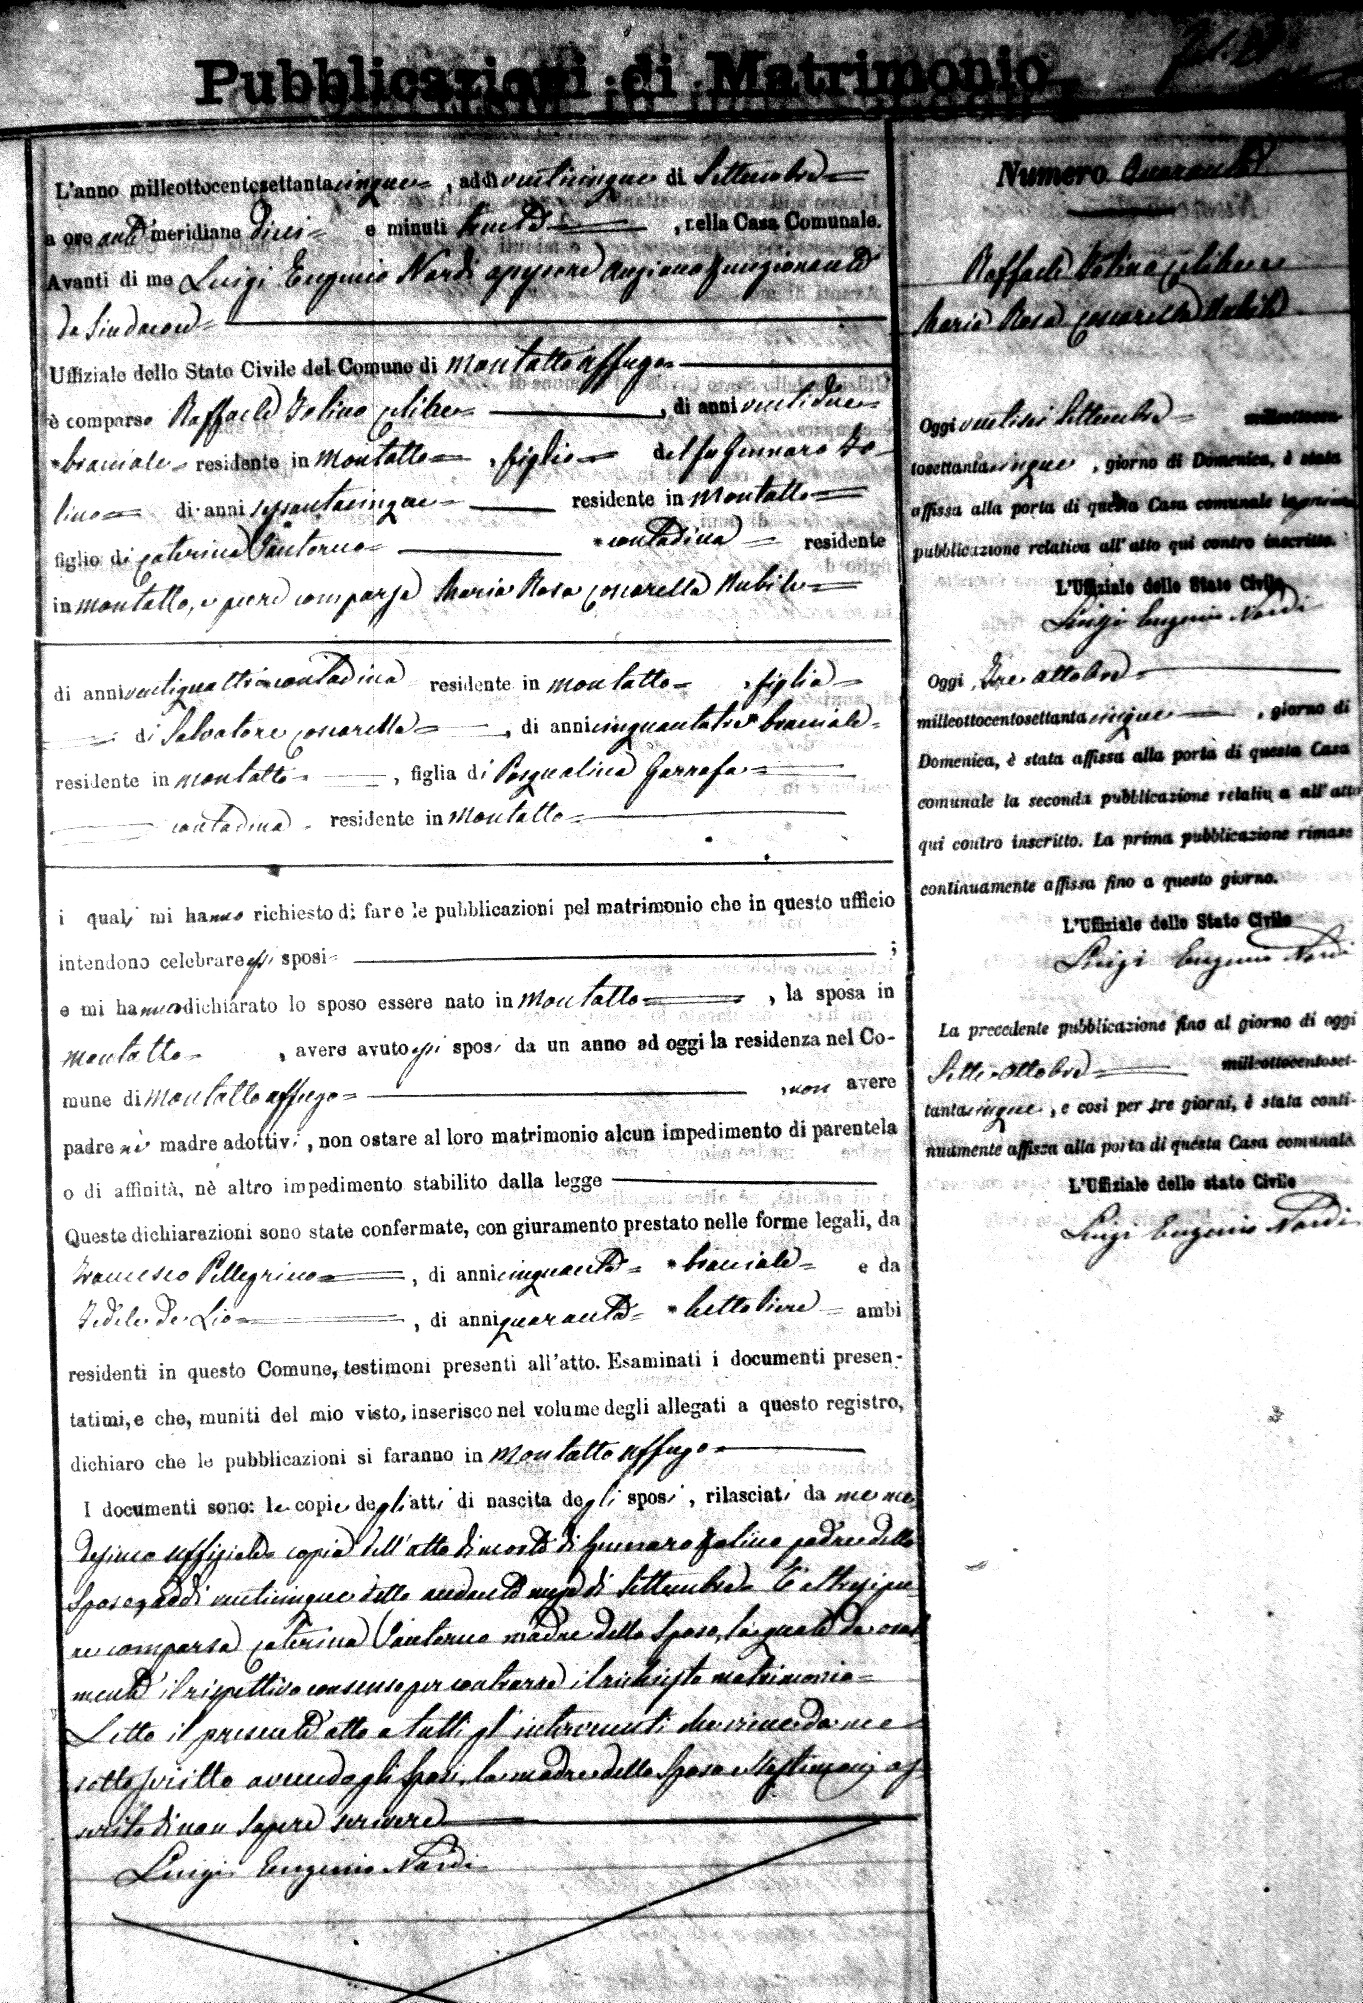 Pubblicazioni di Matrimonio
L'anno milleottocentosettantacinque, addì venticinque di Settembre
a ore anti meridiane dieci e minuti trenta, nella Casa Comunale.
Avanti di me Luigi Eugenio Nardi assessore anziano funzionante
da Sindaco
Uffiziale dello Stato Civile del Comune di Montalto Uffugo
è comparso Raffaele Iolino celibe, di anni ventidue
bracciale residente in Montalto, figlio del fu Gennaro Io-
lino di anni sessantacinque residente in Montalto
figlio di Caterina Santoro contadina residente
in Montalto, e pure comparsa Maria Rosa Coscarella Nubile
di anni ventiquattro contadina residente in Montalto figlia
di Salvatore Coscarella, di anni cinquantatre bracciale
residente in Montalto, figlia di Pasqualina Garrafa
contadina residente in Montalto
i quali mi hanno richiesto di fare le pubblicazioni pel matrimonio che in questo ufficio
intendono celebrare essi sposi ;
e mi hanno dichiarato lo sposo essere nato in Montalto, la sposa in
Montalto, avere avuto essi sposi da un anno ad oggi la residenza nel Co-
mune di Montalto Uffugo, non avere
padre nè madre adottivi, non ostare al loro matrimonio alcun impedimento di parentela
o di affinità, nè altro impedimento stabilito dalla legge
Queste dichiarazioni sono state confermate, con giuramento prestato nelle forme legali, da
Francesco Pellegrino, di anni cinquanta bracciale e da
Fedele De Lio, di anni quaranta bettoliere ambi
residenti in questo Comune, testimoni presenti all'atto. Esaminati i documenti presen-
tatimi, e che, muniti del mio visto, inserisco nel volume degli allegati a questo registro,
dichiaro che le pubblicazioni si faranno in Montalto Uffugo
I documenti sono: le copie degli atti di nascita degli sposi, rilasciati da me me
desimo uffiziale copia dell'atto di morte di Gennaro Iolino padre dello
sposo, addì venticinque dello andante mese di Settembre. E altresì pu
re comparsa Caterina Santoro madre dello sposo, la quale da oral
mente il rispettivo consenso per contrarre il richiesto matrimonio
Letto il presente atto a tutti gl'intervenuti che viene da me
sottoscritto avendo gli sposi, la madre dello sposo e testimoni as
serito di non sapere scrivere
Luigi Eugenio Nardi
Numero Quaranta
Raffaele Iolino celibe e
Maria Rosa Coscarella Nubile
Oggi ventisei Settembre milleottocen-
tosettantacinque, giorno di Domenica, è stata
affissa alla porta di questa Casa comunale la prima
pubblicazione relativa all'atto qui contro inscritto.
L'Uffiziale dello Stato Civile
Luigi Eugenio Nardi
Oggi Tre Ottobre
milleottocentosettantacinque, giorno di
Domenica, è stata affissa alla porta di questa Casa
comunale la seconda pubblicazione relativa all'atto
qui contro inscritto. La prima pubblicazione rimase
continuamente affissa fino a questo giorno.
L'Uffiziale dello Stato Civile
Luigi Eugenio Nardi
La precedente pubblicazione fino al giorno di oggi
Sette Ottobre milleottocentoset-
tantacinque, e così per tre giorni, è stata conti-
nuamente affissa alla porta di questa Casa comunale
L'Uffiziale dello stato Civile
Luigi Eugenio Nardi